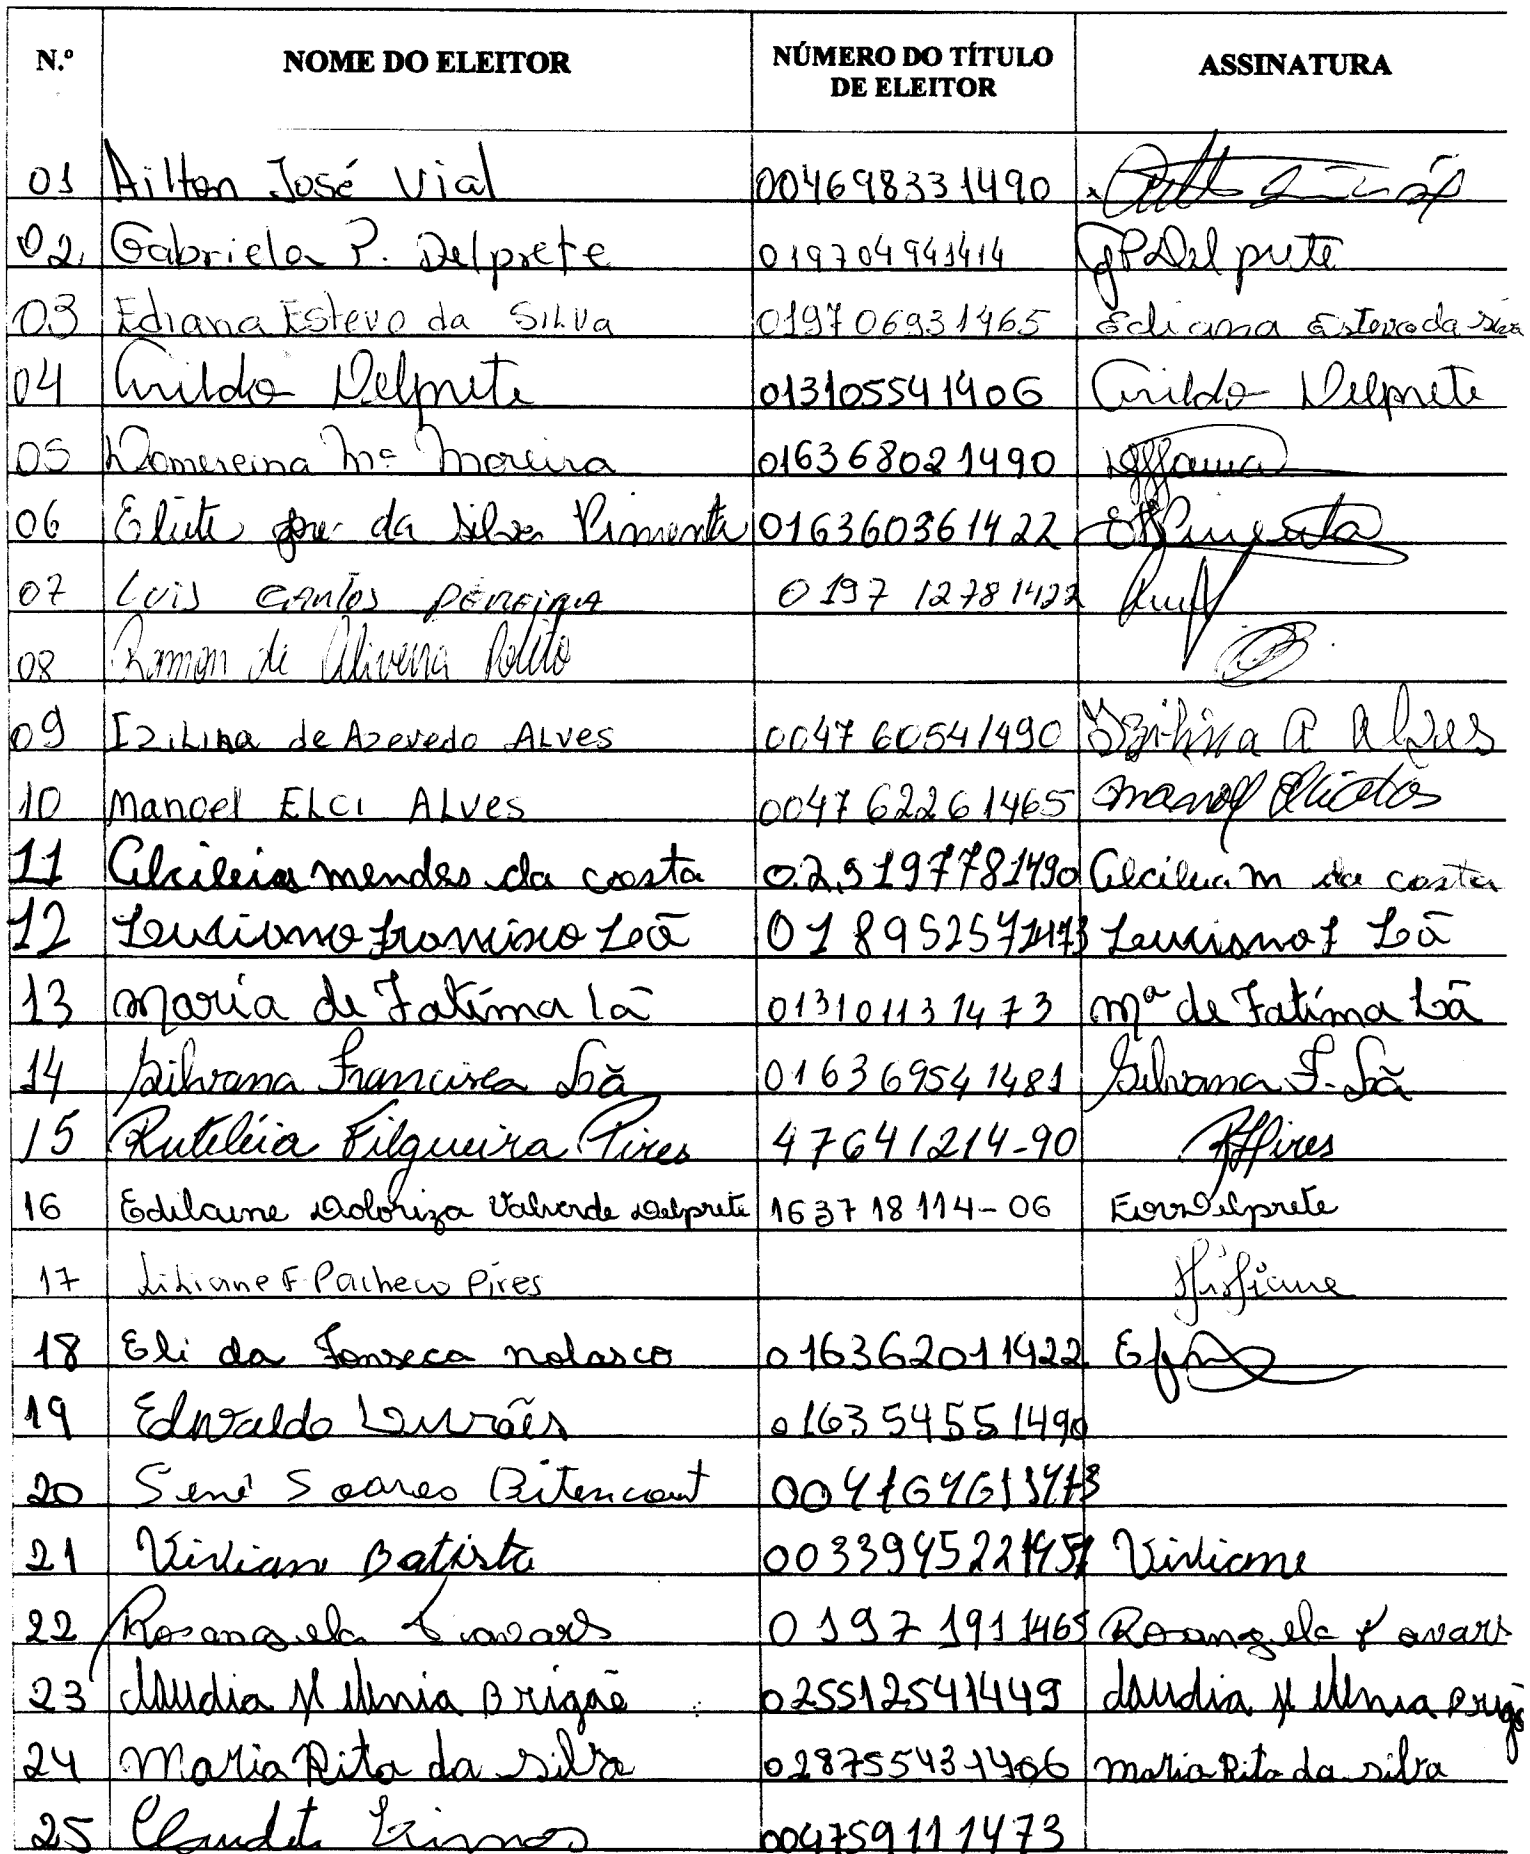 N.º NOME DO ELEITOR NÚMERO DO TÍTULO DE ELEITOR ASSINATURA
01 Ailton José Vial 004698331490
02 Gabriela P. Delprete 019704941414 GPDelprete
03 Ediana Estevo da Silva 019706931465 Ediana Estevo da Silva
04 Cnildo Delprete 013105541406 Cnildo Delprete
05 Domereina Mª Moreira 016368021490
06 Eliete da Silva Pimenta 016360361422 Pimenta
07 Luis Carlos Pereira 0197 1278 1422
08 Ramon de Oliveira Polito
09 Izilina de Azevedo Alves 0047 60541490 Izilina A Alves
10 Manoel Elci Alves 0047 6226 1465 Manoel
11 Alcileia mendes da costa 025197781490 Alcileia m da costa
12 Luciano Francisco Lã 018952571473 Luciano F Lã
13 Maria de Fatíma Lã 013101131473 Mª de Fatíma Lã
14 Silvana Francisca Lã 016369541481 Silvana F. Lã
15 Rutiléia Filgueira Pires 47641214-90 RFPires
16 Edilaine Doloriza Valverde Delprete 163718114-06 Delprete
17 Liliane F. Pacheco Pires Liliane
18 Eli da Fonseca nolasco 016362011422
19 Edvaldo 016354551490
20 Sené Soares Bitencout
21 Batista 003394522145 Viviane
22 Rosangela Tavares 0197 191 1465 Rosangela Tavares
23 Brigão 025512541449
24 Maria Rita da silva 028755431406 maria Rita da silva
25 004759111473